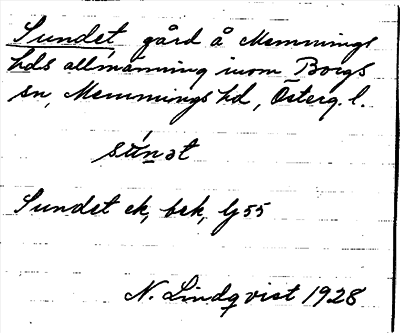 Sundet gård å Memmings
hds allmänning inom Borgs
sn, Memmings hd, Österg. l.
sún̲ət
Sundet ek, bek, lj 55
N. Lindqvist 1928